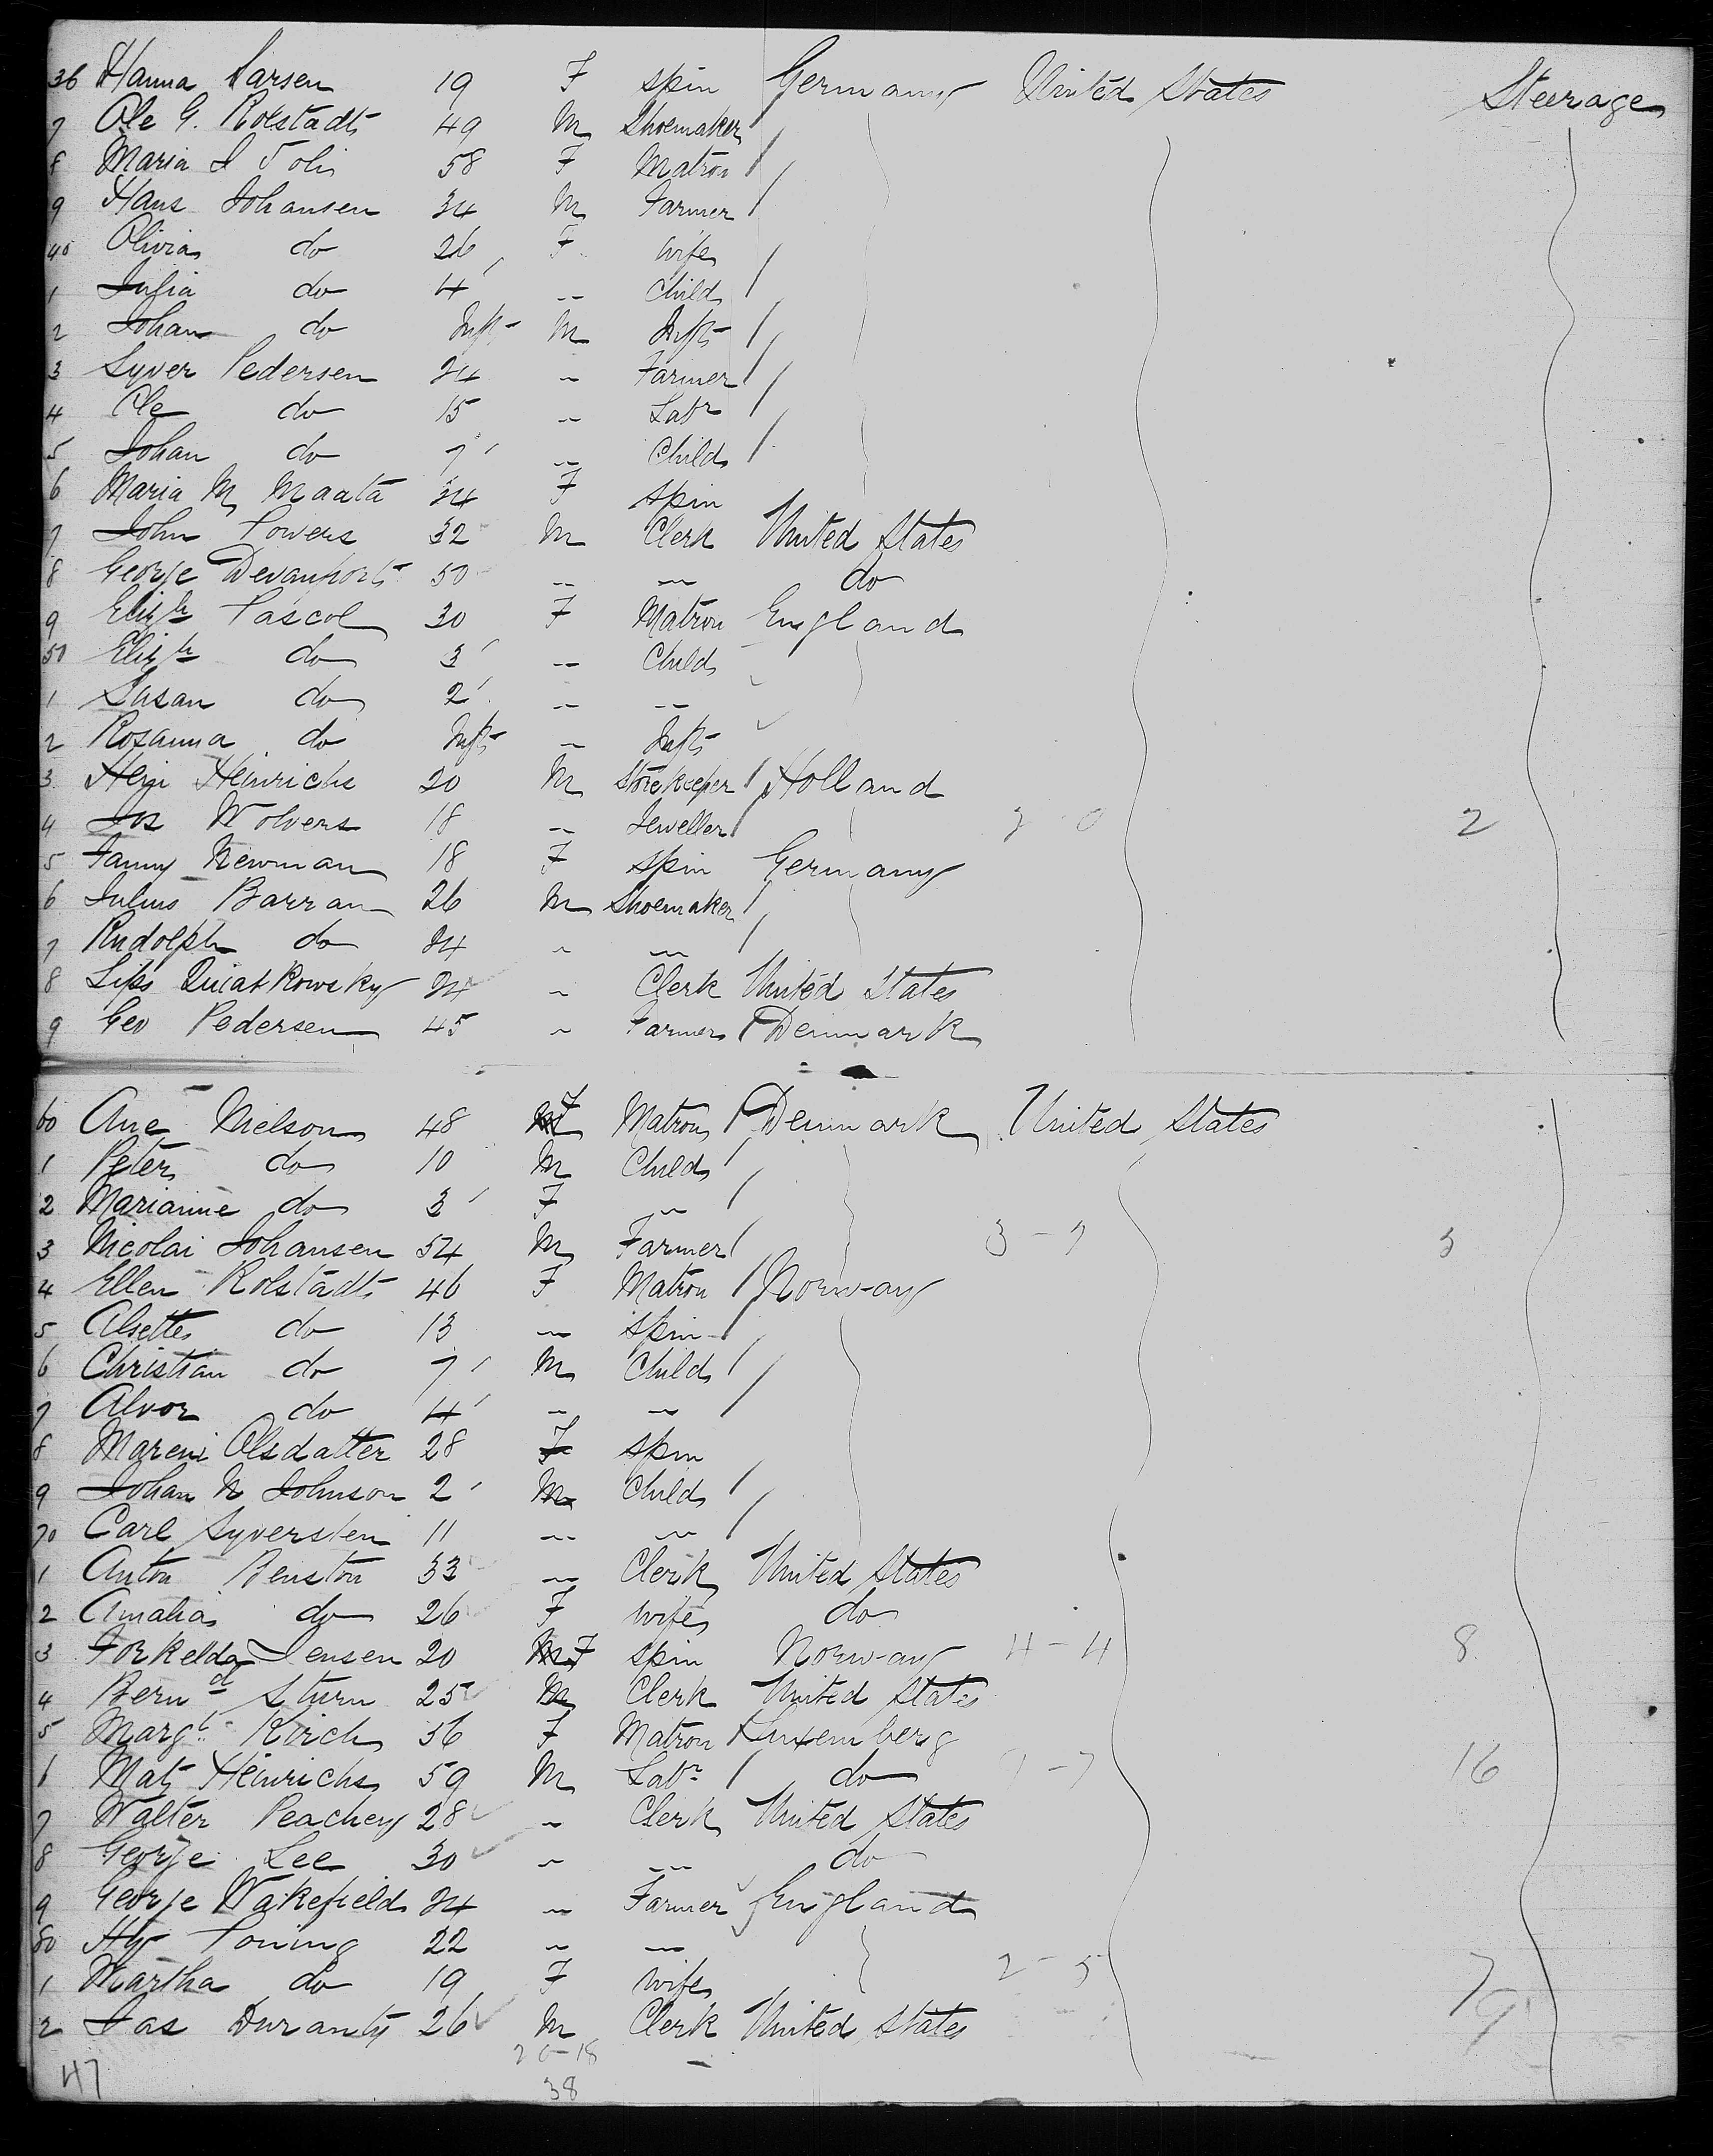 36 Hanna Larsen 19 F Spin Germany United States Steerage
7 Ole G. Rolstadt 49 M Shoemaker /
8 Maria I Tolin 58 F Matron /
9 Hans Johansen 34 M Farmer /
40 Olivia do 26 F. wife
1 Julia do 4 -- Child /
2 Johan do Inft M Inft /
3 Syver Pedersen 24 " Farmer /
4 Ole do 15 " Labr /
5 Johan do 7 " Child /
6 Maria M Maata 24 F Spin
7 John Powers 32 M Clerk United States
8 George Devanport 50 " " do
9 Elizh Pascol 30 F Matron England
50 Elizh do 3 " Child
1 Susan do 2 " "
2 Rosanna do Inft " Inft
3 Hein Heinrichs 20 M Storekeeper / Holland
4 Jos Wolvers 18 " Jeweller / 2
5 Fanny Newman 18 F Spin Germany
6 Julius Barran 26 M Shoemaker /
7 Rudolph do 24 " " /
8 Lips Quiatkowsky 24 " Clerk United States
9 Geo Pedersen 45 " Farmer / Denmark
60 Ane Nielson 48 F Matron / Denmark United States
1 Peter do 10 M Child /
2 Marianne do 3 F " /
3 Nicolai Johansen 54 M Farmer /
4 Ellen Rolstadt 46 F Matron / Norway
5 Alsette do 13 " Spin /
6 Christian do 7 M Child /
7 Alvor do 4 " " /
8 Mareni Olsdatter 28 F Spin
9 Johan N Johnson 2 M Child /
70 Carl Syversten 11 " " /
1 Anton Benston 33 " Clerk United States
2 Amalia do 26 F wife do
3 Torkelda Jensen 20 F Spin Norway 4-4 8
4 Bernd Sturn 25 M Clerk United States
5 Margt Kirch 36 F Matron Luxemberg
6 Mats Heinrichs 59 M Labr / do 16
7 Walter Peachey 28 " Clerk United States
8 George Lee 30 " " do
9 George Wakefield 24 " Farmer England
80 Hy Poning 22 " "
1 Martha do 19 F wife 2-5
2 Jas Duranty 26 M Clerk United States
20-18
47 38